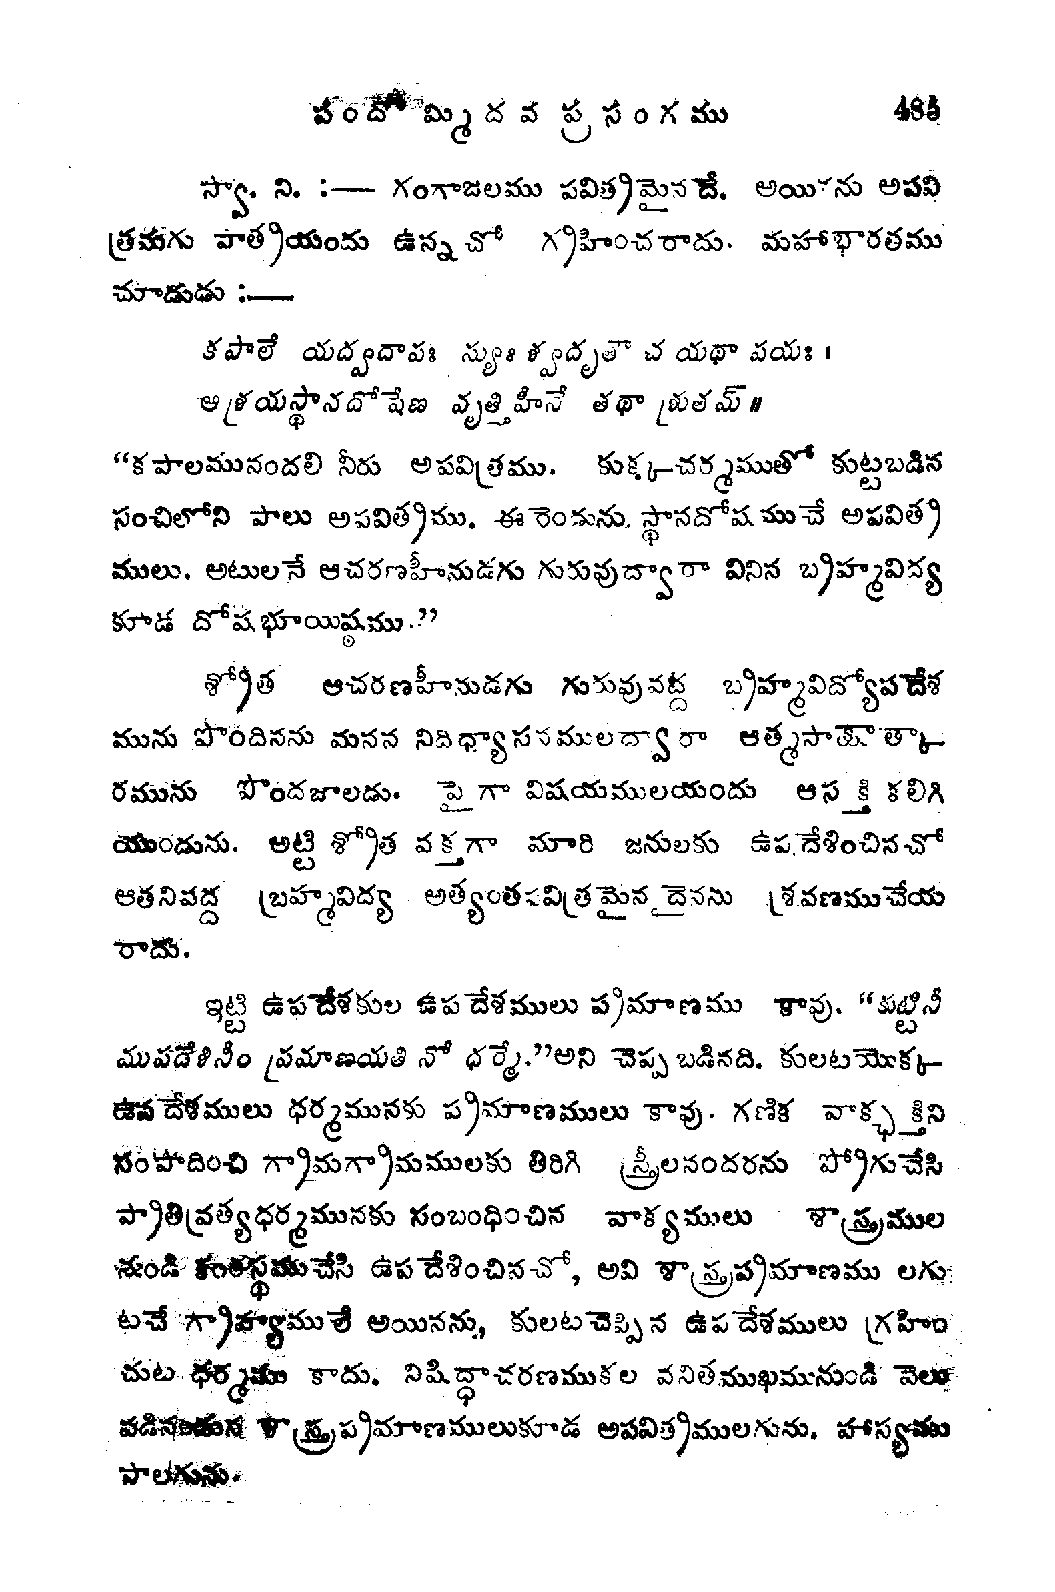 పందొమ్మిదవ ప్రసంగము 485
స్వా. ని. :— గంగాజలము పవిత్రమైనదే. అయినను అపవి
త్రమగు పాత్రయందు ఉన్నచో గ్రహించరాదు. మహాభారతము
చూడుడు :—
కపాలే యద్వదాపః స్యుః శ్వదృతౌ చ యథా పయః ।
ఆశ్రయస్థానదోషేణ వృత్తిహీనే తథా శ్రుతమ్ ॥
“కపాలమునందలి నీరు అపవిత్రము. కుక్కచర్మముతో కుట్టబడిన
సంచిలోని పాలు అపవిత్రము. ఈ రెండును. స్థానదోషముచే అపవిత్ర
ములు. అటులనే ఆచరణహీనుడగు గురువుద్వారా వినిన బ్రహ్మవిద్య
కూడ దోషభూయిష్ఠము.”
శ్రోత ఆచరణహీనుడగు గురువువట్ద బ్రహ్మవిద్యోపదేశ
మును పొందినను మనన నిదిధ్యాసనములద్వారా ఆత్మసాక్షాత్కా
రమును పొందజాలడు. పైగా విషయములయందు ఆసక్తి కలిగి
యుండును. అట్టి శ్రోత వక్తగా మారి జనులకు ఉపదేశించినచో
ఆతనివద్ద బ్రహ్మవిద్య అత్యంతపవిత్రమైనదైనను శ్రవణముచేయ
రాదు.
ఇట్టి ఉపదేశకుల ఉపదేశములు ప్రమాణము కావు. “కుట్టినీ
ముపదేశినీం ప్రమాణయతి నో ధర్మే.”అని చెప్పబడినది. కులటయొక్క
ఉపదేశములు ధర్మమునకు ప్రమాణములు కావు. గణిక వాక్ఛక్తిని
సంపాదించి గ్రామగ్రామములకు తిరిగి స్త్రీలనందరను ప్రోగుచేసి
పాతివ్రత్యధర్మమునకు సంబంధించిన వాక్యములు శాస్త్రముల
నుండి కంఠస్థముచేసి ఉపదేశించినచో, అవి శాస్త్రప్రమాణము లగు
టచే గ్రాహ్యములే అయినను, కులటచెప్పిన ఉపదేశములు గ్రహిం
చుట ధర్మము కాదు. నిషిద్ధాచరణముకల వనితముఖమునుండి వెలు
వడినందున శాస్త్రప్రమాణములుకూడ అపవిత్రములగును. హాస్యము
పాలగును.